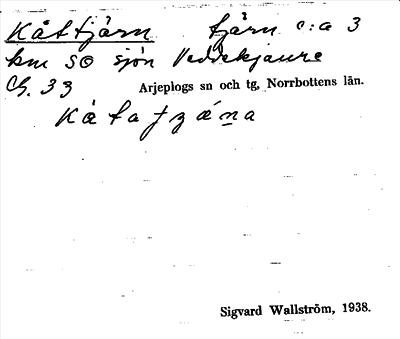 Kåttjärn tjärn c:a 3
km SO sjön Veddekjaure
G. 33 Arjeplogs sn och tg, Norrbottens län.
Sigvard Wallström, 1938.